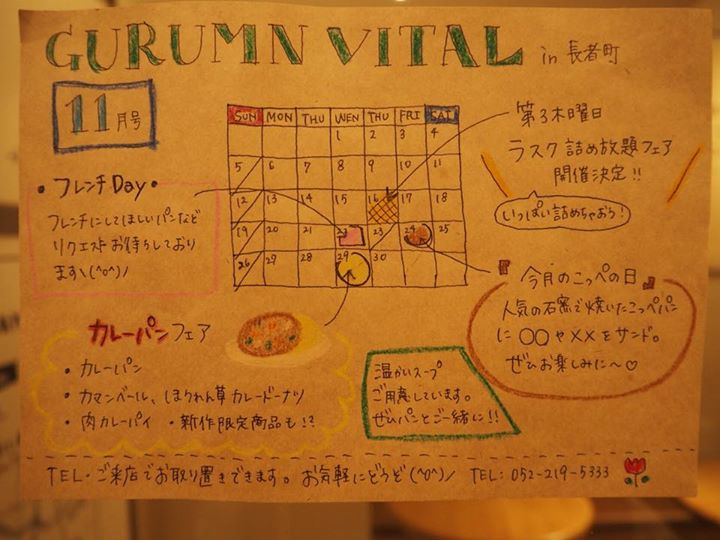 GURUMN VITAL in 長者町
11月号
SUN MON THU WEN THU FRI SAT
1 2 3 4
5 6 7 8 9 10 11
12 13 14 15 16 17 18
19 20 21 22 23 24 25
26 27 28 29 30
第3木曜日
ラスク詰め放題フェア
開催決定!!
いっぱい詰めちゃおう!
・フレンチDay・
フレンチにしてほしいパンなど
リクエストお待ちしており
ますヽ(^o^)ノ
『今月のこっぺの日』
人気の石窯で焼いたこっぺパン
に〇〇や××をサンド。
ぜひお楽しみに〜♡
カレーパンフェア
・カレーパン
・カマンベール、ほうれん草カレードーナツ
・肉カレーパイ ・新作限定商品も!?
温かいスープ
ご用意しています。
ぜひパンとご一緒に!!
TEL・ご来店でお取り置きできます。お気軽にどうぞ(^o^)ノ TEL: 052-219-5333